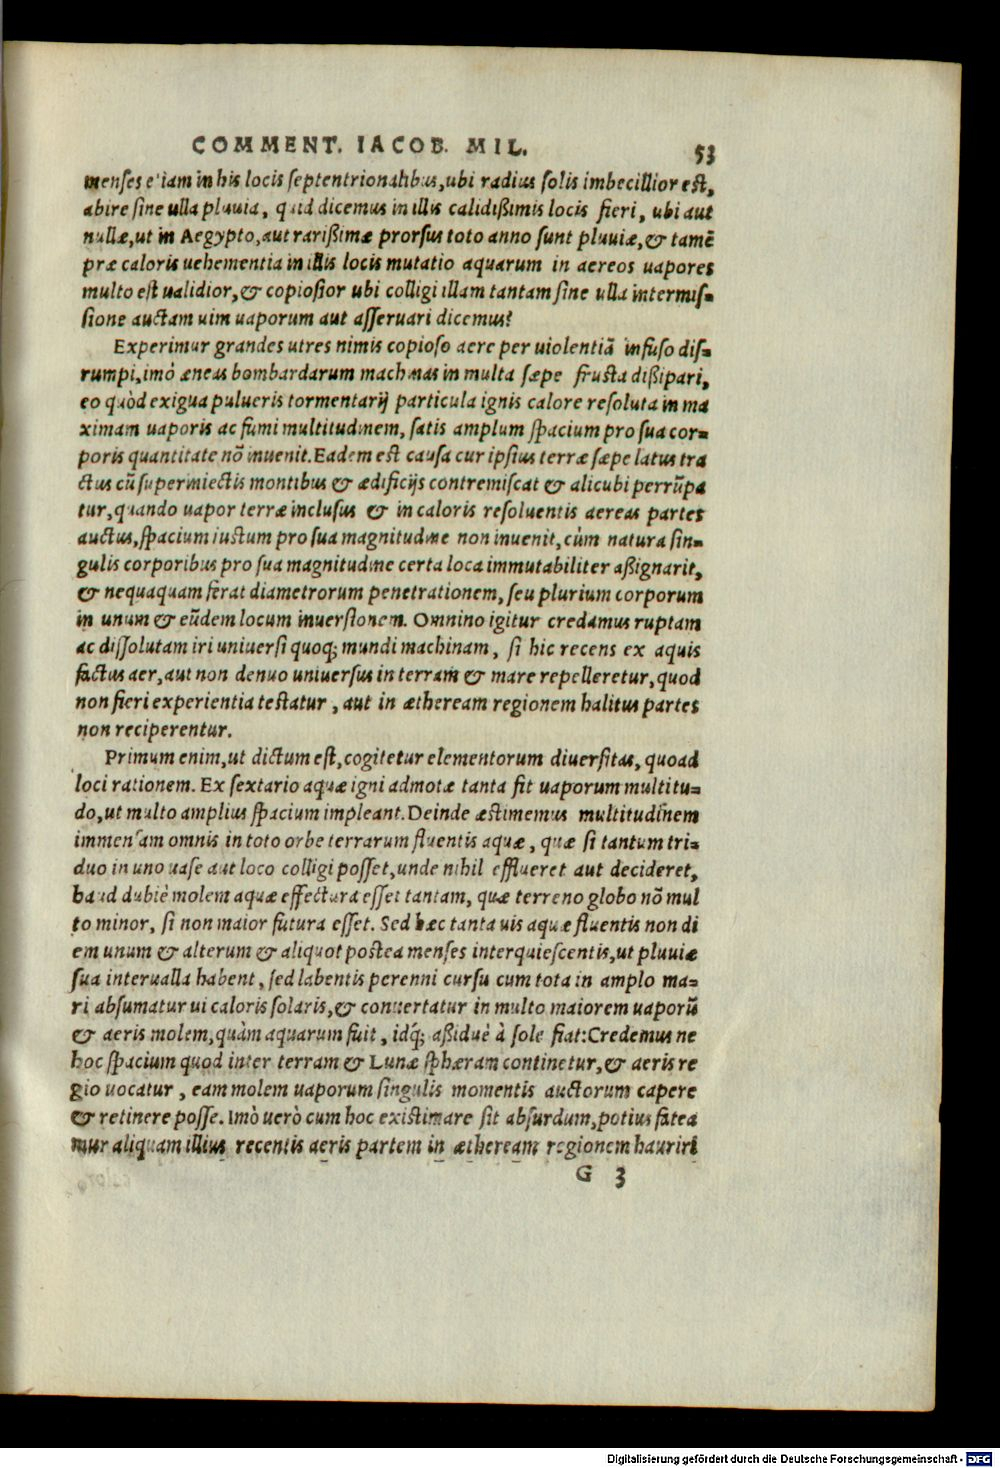 COMMENT. IACOB. MIL. 53
menses etiam in his locis septentrionalibus, ubi radius solis imbecillior est,
abire sine ulla pluuia, quid dicemus in illis calidißimis locis fieri, ubi aut
nullæ, ut in Aegypto, aut rarißimæ prorsus toto anno sunt pluuiæ, & tamē
præ caloris uehementia in illis locis mutatio aquarum in aereos uapores
multo est ualidior, & copiosior ubi colligi illam tantam sine ulla intermis-
sione auctam uim uaporum aut asseruari dicemus?
Experimur grandes utres nimis copioso aere per uiolentiā infuso dis-
rumpi, imò æneas bombardarum machinas in multa sæpe frusta dißipari,
eo quòd exigua pulueris tormentarij particula ignis calore resoluta in ma
ximam uaporis ac fumi multitudinem, satis amplum spacium pro sua cor-
poris quantitate nō inuenit. Eadem est causa cur ipsius terræ sæpe latus tra
ctus cū superiniectis montibus & ædificijs contremiscat & alicubi perrūpa
tur, quando uapor terræ inclusus & in caloris resoluentis aereas partes
auctus, spacium iustum pro sua magnitudine non inuenit, cùm natura sin-
gulis corporibus pro sua magnitudine certa loca immutabiliter aßignarit,
& nequaquam ferat diametrorum penetrationem, seu plurium corporum
in unum & eūdem locum inuersionem. Omnino igitur credamus ruptam
ac dissolutam iri uniuersi quoq; mundi machinam, si hic recens ex aquis
factus aer, aut non denuo uniuersus in terram & mare repelleretur, quod
non fieri experientia testatur, aut in ætheream regionem halitus partes
non reciperentur.
Primum enim, ut dictum est, cogitetur elementorum diuersitas, quoad
loci rationem. Ex sextario aquæ igni admotæ tanta fit uaporum multitu-
do, ut multo amplius spacium impleant. Deinde æstimemus multitudinem
immensam omnis in toto orbe terrarum fluentis aquæ, quæ si tantum tri-
duo in uno uase aut loco colligi posset, unde nihil efflueret aut decideret,
haud dubiè molem aquæ effectura esset tantam, quæ terreno globo nō mul
to minor, si non maior futura esset. Sed hæc tanta uis aquæ fluentis non di
em unum & alterum & aliquot postea menses interquiescentis, ut pluuiæ
sua interualla habent, sed labentis perenni cursu cum tota in amplo ma-
ri absumatur ui caloris solaris, & conuertatur in multo maiorem uaporū
& aeris molem, quàm aquarum fuit, idq́; aßiduè à sole fiat: Credemus ne
hoc spacium quod inter terram & Lunæ sphæram continetur, & aeris re
gio uocatur, eam molem uaporum singulis momentis auctorum capere
& retinere posse. Imò uerò cum hoc existimare sit absurdum, potius fatea
mur aliquam illius recentis aeris partem in ætheream regionem hauriri
G 3
Digitalisierung gefördert durch die Deutsche Forschungsgemeinschaft - DFG